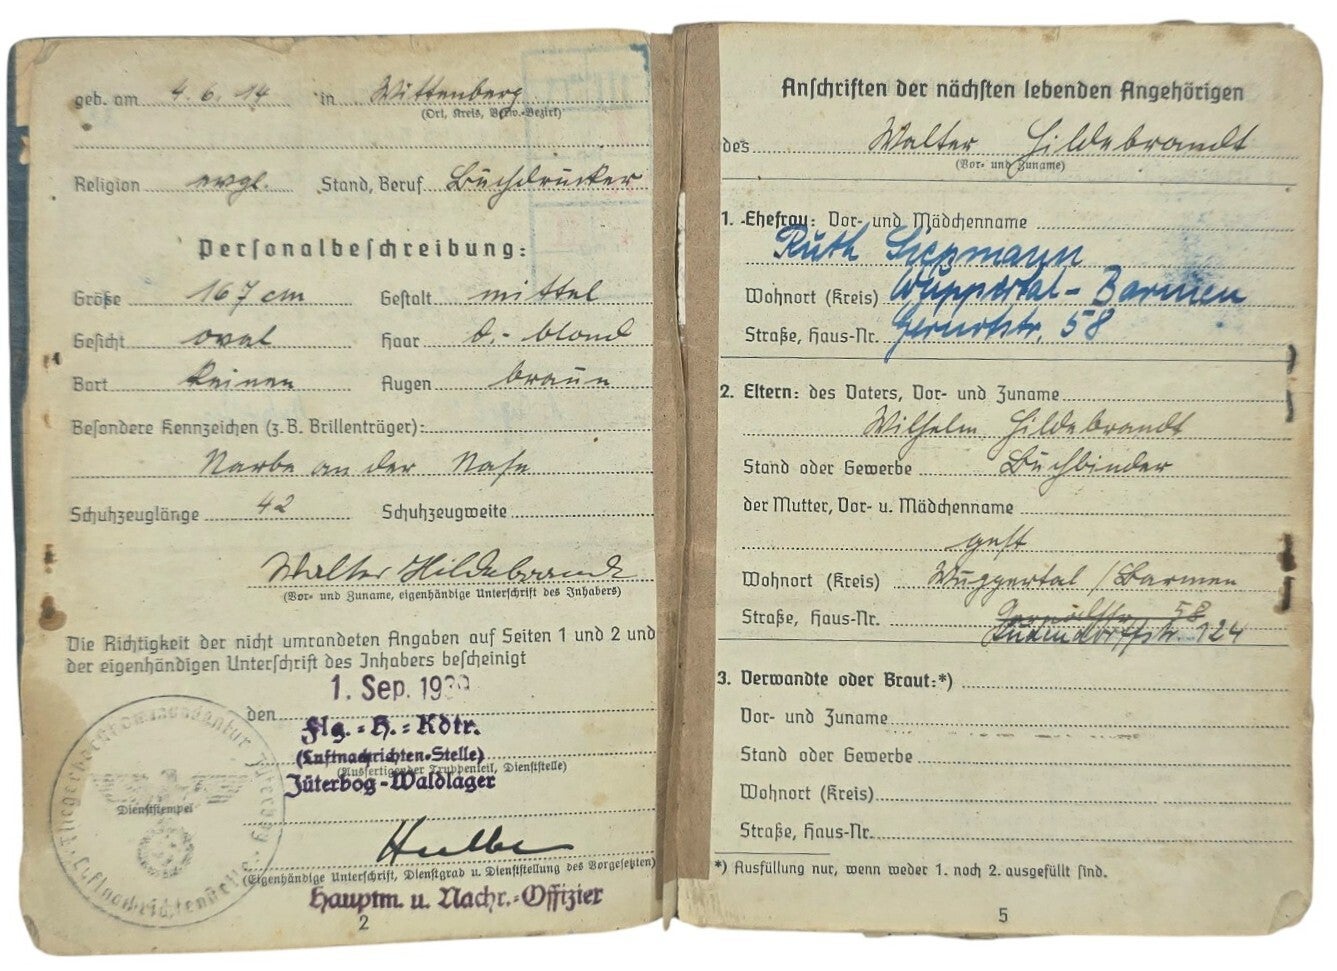 geb. am 4.6.14 in Wittenberg
(Ort, Kreis, Verw.-Bezirk)
Religion evgl. Stand, Beruf Buchdrucker
Personalbeschreibung:
Größe 167 cm Gestalt mittel
Gesicht oval Haar d.-blond
Bart keinen Augen braun
Besondere Kennzeichen (z.B. Brillenträger):
Narbe an der Nase
Schuhzeuglänge 42 Schuhzeugweite
Walter Hildebrandt
(Vor- und Zuname, eigenhändige Unterschrift des Inhabers)
Die Richtigkeit der nicht umrandeten Angaben auf Seiten 1 und 2 und
der eigenhändigen Unterschrift des Inhabers bescheinigt
den 1. Sep. 1939
Flg.-H.-Kdtr.
(Luftnachrichten-Stelle)
(Ausfertigender Truppenteil, Dienststelle)
Jüterbog-Waldlager
Fliegerhorstkommandantur Jüterbog
Luftnachrichtenstelle
Dienststempel
(Eigenhändige Unterschrift, Dienstgrad u. Dienststellung des Vorgesetzten)
Hauptm. u. Nachr.-Offizier
2
Anschriften der nächsten lebenden Angehörigen
des Walter Hildebrandt
(Vor- und Zuname)
1. Ehefrau: Vor- und Mädchenname
Ruth Siepmann
Wohnort (Kreis) Wuppertal-Barmen
Straße, Haus-Nr. 58
2. Eltern: des Vaters, Vor- und Zuname
Wilhelm Hildebrandt
Stand oder Gewerbe Buchbinder
der Mutter, Vor- u. Mädchenname
gest
Wohnort (Kreis) Wuppertal/Barmen
58
Straße, Haus-Nr. Ludendorffstr. 124
3. Verwandte oder Braut:*)
Vor- und Zuname
Stand oder Gewerbe
Wohnort (Kreis)
Straße, Haus-Nr.
*) Ausfüllung nur, wenn weder 1. noch 2. ausgefüllt sind.
5